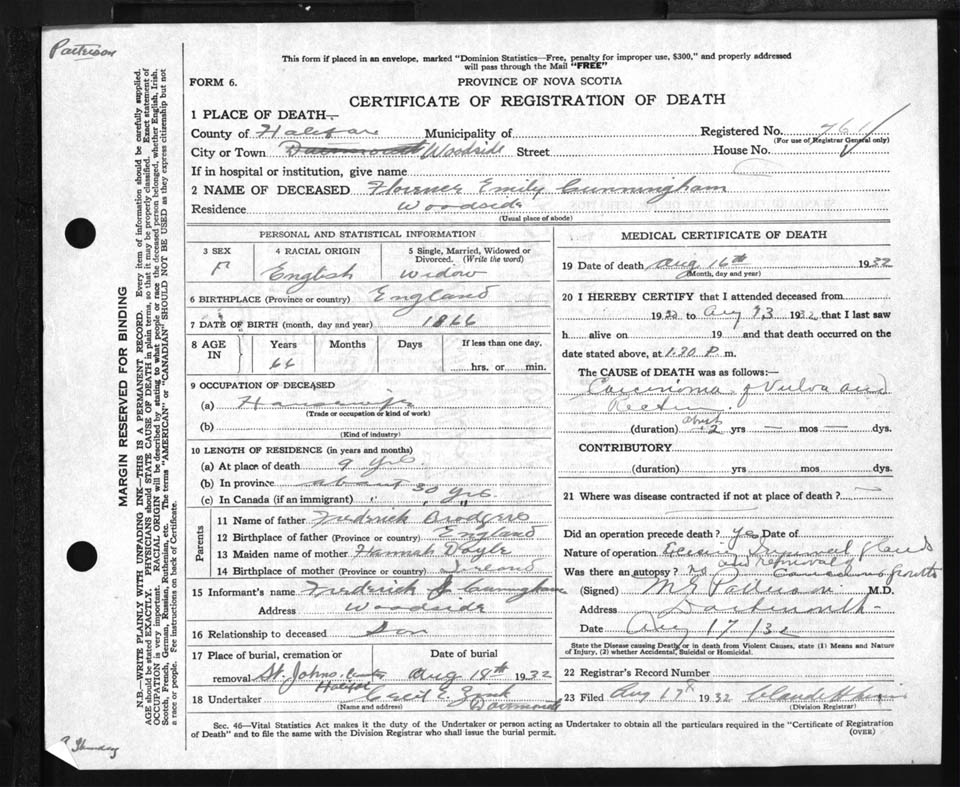 Patterson
This form if placed in an envelope, marked "Dominion Statistics—Free, penalty for improper use, $300," and properly addressed
will pass through the Mail "FREE"
FORM 6.
PROVINCE OF NOVA SCOTIA
CERTIFICATE OF REGISTRATION OF DEATH
1 PLACE OF DEATH—
County of Halifax Municipality of Registered No.
(For use of Registrar General only)
City or Town Dartmouth Woodside Street House No.
If in hospital or institution, give name
2 NAME OF DECEASED Emily Cunningham
Residence Woodside
(Usual place of abode)
PERSONAL AND STATISTICAL INFORMATION
3 SEX 4 RACIAL ORIGIN 5 Single, Married, Widowed or
Divorced. (Write the word)
F English Widow
6 BIRTHPLACE (Province or country) England
7 DATE OF BIRTH (month, day and year) 1866
8 AGE IN Years Months Days If less than one day.
66 hrs. or min.
9 OCCUPATION OF DECEASED
(a) Housewife
(Trade or occupation or kind of work)
(b)
(Kind of industry)
10 LENGTH OF RESIDENCE (in years and months)
(a) At place of death 9 yrs.
(b) In province about 30 yrs.
(c) In Canada (if an immigrant) " "
Parents
11 Name of father Frederick
12 Birthplace of father (Province or country) England
13 Maiden name of mother Hannah Doyle
14 Birthplace of mother (Province or country) Ireland
15 Informant's name Frederick Cunningham
Address Woodside
16 Relationship to deceased Son
17 Place of burial, cremation or Date of burial
removal St. Johns Halifax Aug 18th 1932
18 Undertaker Cecil E. Zink
(Name and address) Dartmouth
MEDICAL CERTIFICATE OF DEATH
19 Date of death Aug 16th 1932
(Month, day and year)
20 I HEREBY CERTIFY that I attended deceased from
19 to Aug 13 1932 that I last saw
h alive on 19 and that death occurred on the
date stated above, at 1.30 P. m.
The CAUSE OF DEATH was as follows:—
Carcinoma of Vulva and
Rectum
(duration) about 2 yrs — mos — dys.
CONTRIBUTORY
(duration) yrs mos dys.
21 Where was disease contracted if not at place of death?
Did an operation precede death? Yes Date of
Nature of operation glands
and removal of
Was there an autopsy? No growth
(Signed) Patterson M.D.
Address Dartmouth
Date Aug 17/32
State the Disease causing Death, or in death from Violent Causes, state (1) Means and Nature
of Injury, (2) whether Accidental, Suicidal or Homicidal.
22 Registrar's Record Number
23 Filed Aug 17th 1932
(Division Registrar)
Sec. 46—Vital Statistics Act makes it the duty of the Undertaker or person acting as Undertaker to obtain all the particulars required in the "Certificate of Registration
of Death" and to file the same with the Division Registrar who shall issue the burial permit.
(OVER)
MARGIN RESERVED FOR BINDING
N.B.—WRITE PLAINLY WITH UNFADING INK—THIS IS A PERMANENT RECORD. Every item of information should be carefully supplied.
AGE should be stated EXACTLY. PHYSICIANS should STATE CAUSE OF DEATH in plain terms, so that it may be properly classified. Exact statement of
OCCUPATION is very important. RACIAL ORIGIN will be described by stating to what people or race the deceased person belonged, whether English, Irish,
Scotch, French, German, Russian, Ruthenian, etc. The terms "AMERICAN" or "CANADIAN" SHOULD NOT BE USED as they express citizenship but not
a race or people. See instructions on back of Certificate.